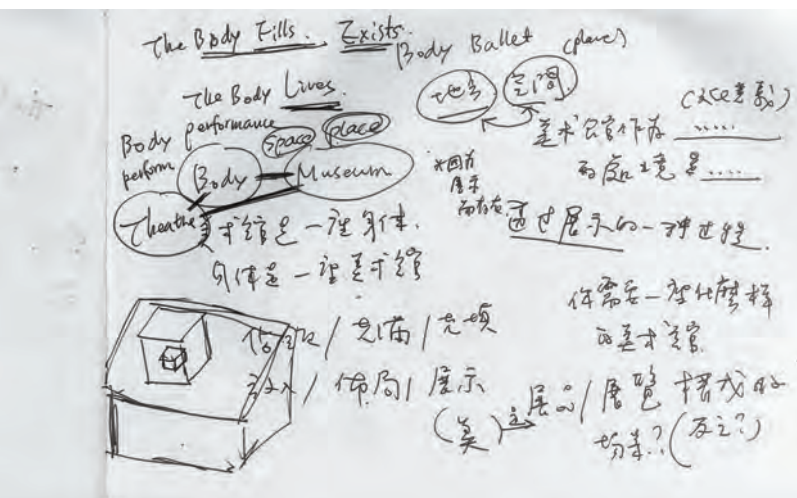 The Body Fills. Exists.
Body Ballet (place)
The Body Lives.
地方 空间
Body performance
perform
space place
Body Museum
Theathe
美术馆作为 ......
的处境是 ......
*因为
展示
而存在.
通过展示的一种过程.
美术馆是一种身体.
身体是一种美术馆
你需要一座什麽样
的美术馆
/ 充满 / 充填
/ 佈局 / 展示
(美)
展品 / 展览 构成的
场景? (反之?)